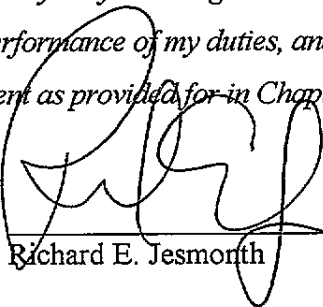 erformance of my duties, and
ent as provided for in Chap
Richard E. Jesmonth